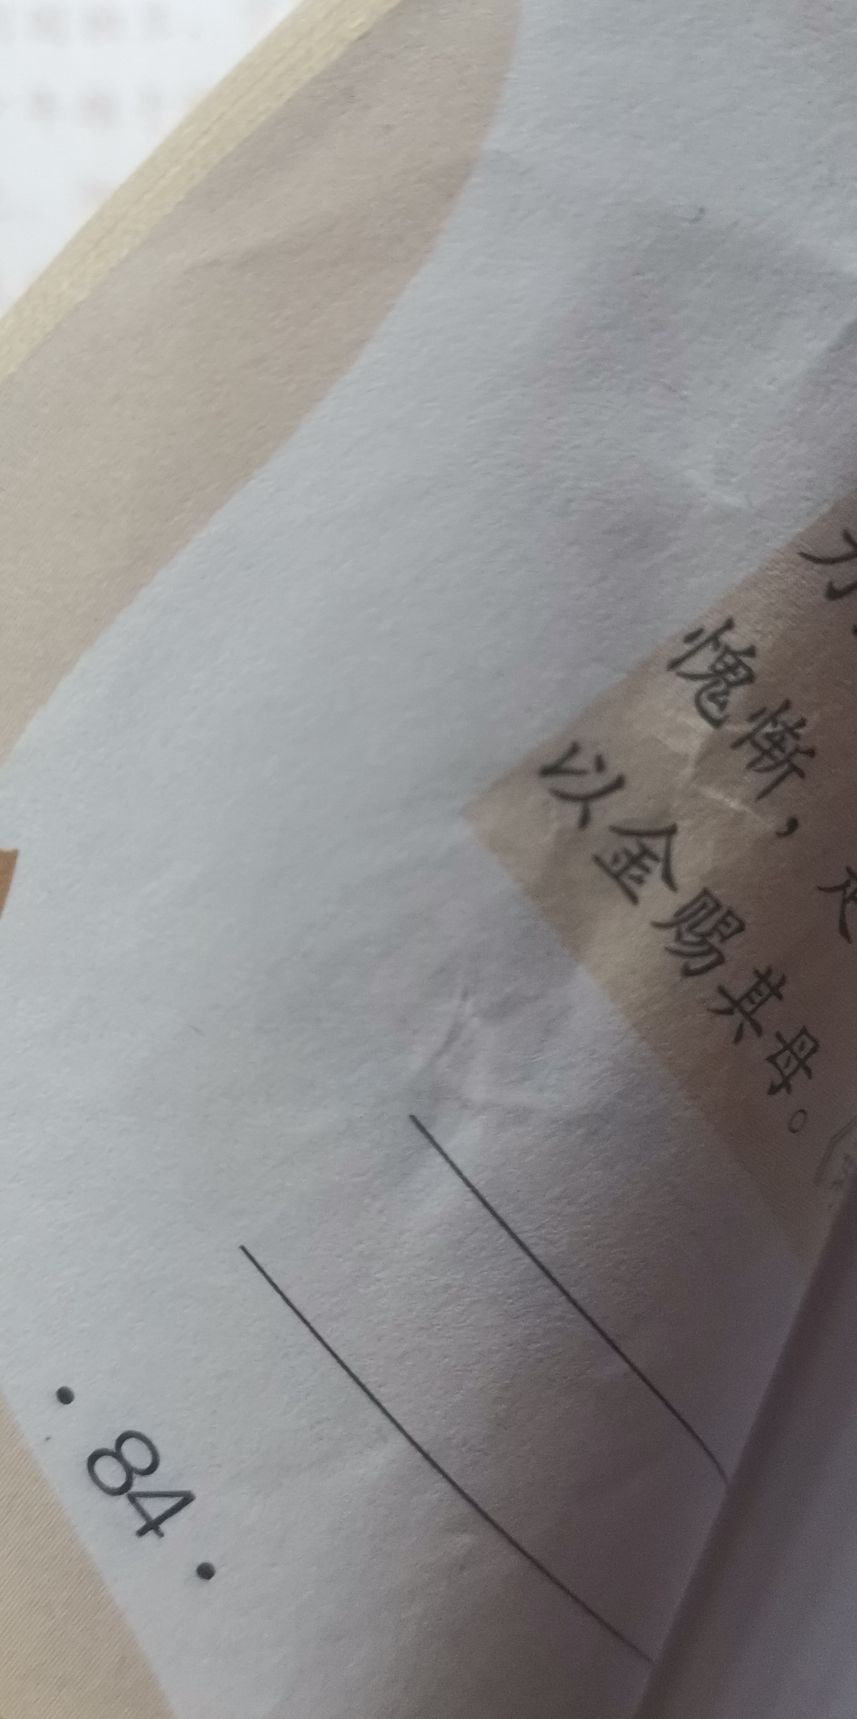 愧惭，
以金赐其母。
·84·